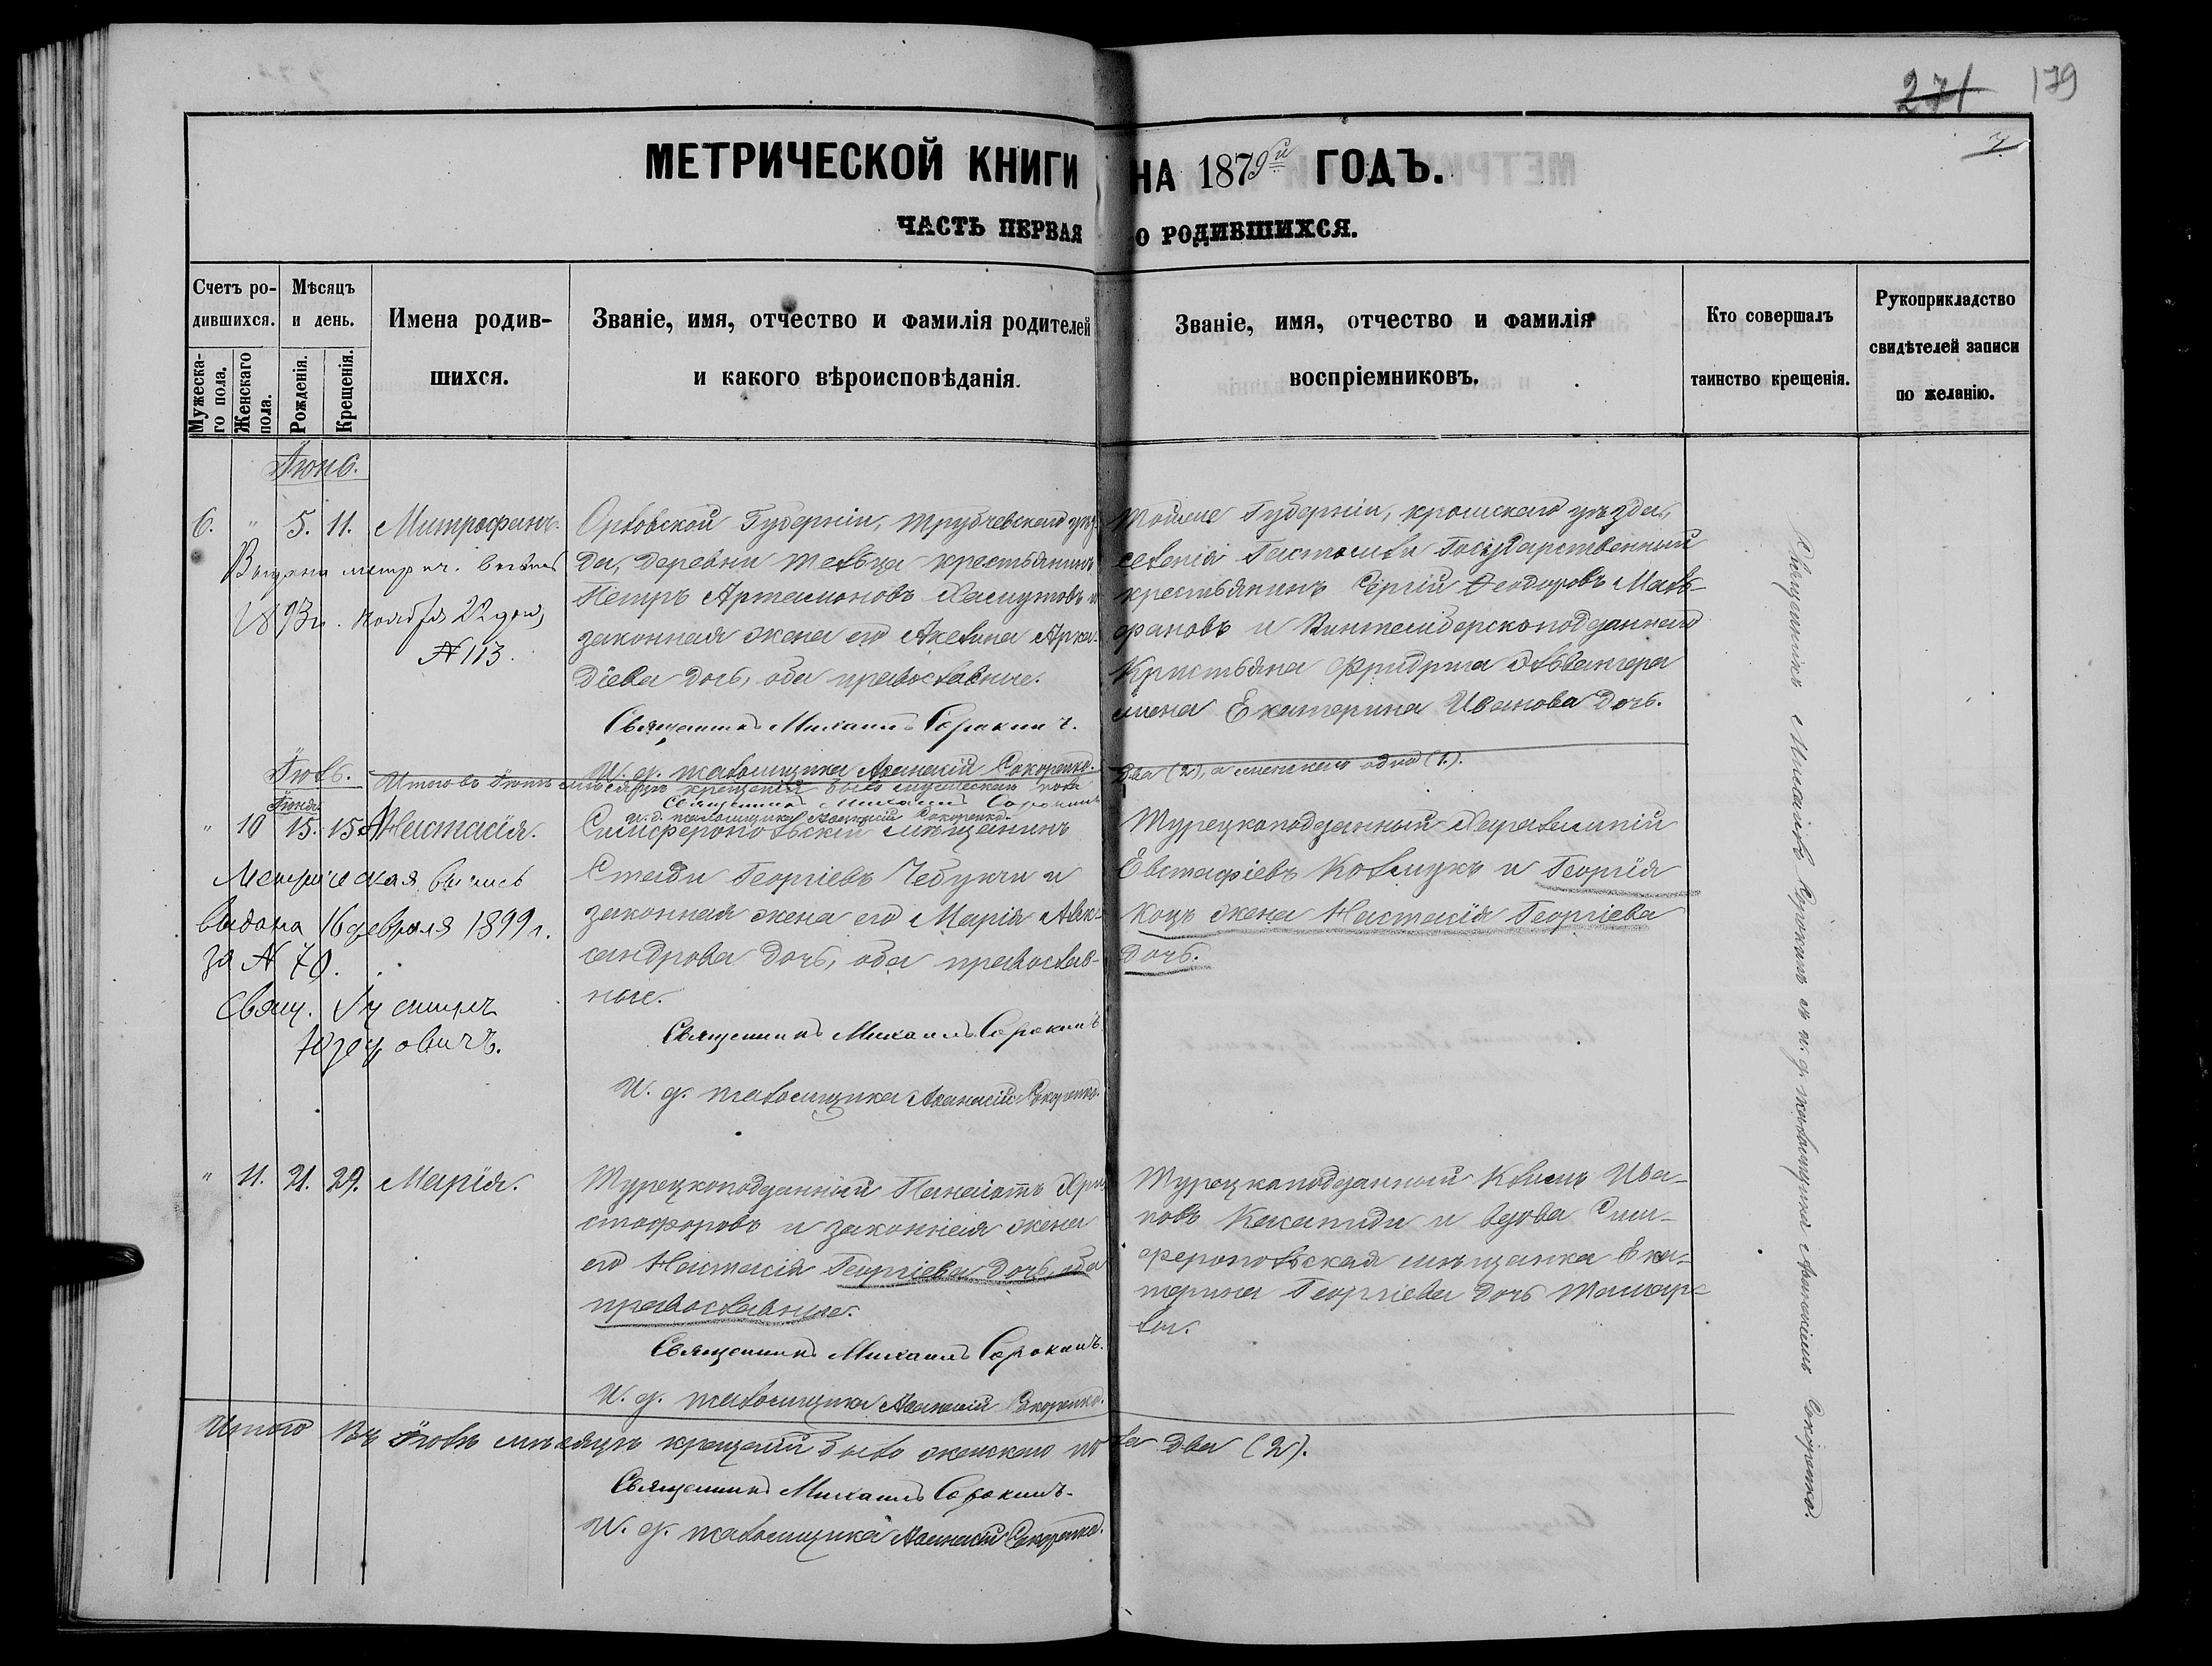 271 179
7
МЕТРИЧЕСКОЙ КНИГИ НА 1879й ГОДЪ.
ЧАСТЬ ПЕРВАЯ О РОДИВШИХСЯ.
Счетъ ро-
дившихся.
Мужеска-
го пола.
Женскаго
пола.
Мѣсяцъ
и день.
Рожденія.
Крещенія.
Имена родив-
шихся.
Званіе, имя, отчество и фамилія родителей
и какого вѣроисповѣданія.
Званіе, имя, отчество и фамилія
воспріемниковъ.
Кто совершалъ
таинство крещенія.
Рукоприкладство
свидѣтелей записи
по желанію.
Іюнь.
6. " 5. 11. Митрофанъ.
Выдана метрич. выпись
1893 г. Ноября 22 дня,
№ 113.
Орловской Губерніи, Трубчевскаго уѣз-
да, деревни Тельца крестьянинъ
Петръ Артамоновъ и
законная жена его Акелина Арка-
діева дочь, оба православные.
Священникъ Михаилъ Сорокинъ.
И. д. псаломщика Аѳанасій Сокоренко.
Тойже Губерніи, кромскаго уѣзда,
селенія Государственный
крестьянинъ Сергій Ѳеодоровъ Маль-
фановъ и Виртембергскоподданнаго
Кристьяна Фридриха
жена Екатерина Иванова дочь.
Іюль.
Итого въ Іюнѣ мѣсяцѣ крещеній было мужескаго пола два (2), а женскаго одно (1).
Священникъ Михаилъ Сорокинъ
и. д. псаломщика Аѳанасій Сокоренко.
Іюня
" 10 15. 15. Анастасія.
Метрическая выпись
выдана 16 февраля 1899 г.
за № 70.
Свящ.
Симферопольскій мѣщанинъ
Стади Георгіевъ Чебукчи и
законная жена его Марія Алек-
сандрова дочь, оба православ-
ные.
Священникъ Михаилъ Сорокинъ
И. д. псаломщика Аѳанасій Сокоренко.
Турецкоподданный Харалампій
Евстафіевъ и Георгія
Коцъ жена Настасія Георгіева
дочь.
" 11. 21. 29. Марія.
Турецкоподданный Панаіотъ Хри-
стофоровъ и законная жена
его Настасія Георгіева дочь, оба
православные.
Священникъ Михаилъ Сорокинъ.
И. д. псаломщика Аѳанасій Сокоренко.
Турецкоподданный Климъ Ива-
новъ Каканиди и вдова Сим-
феропольская мѣщанка Ека-
терина Георгіева дочь
Священникъ Михаилъ Сорокинъ съ и. д. псаломщика Аѳанасіемъ Сокоренко.
Итого въ Іюлѣ мѣсяцѣ крещеній было женскаго пола два (2).
Священникъ Михаилъ Сорокинъ.
И. д. псаломщика Аѳанасій Сокоренко.